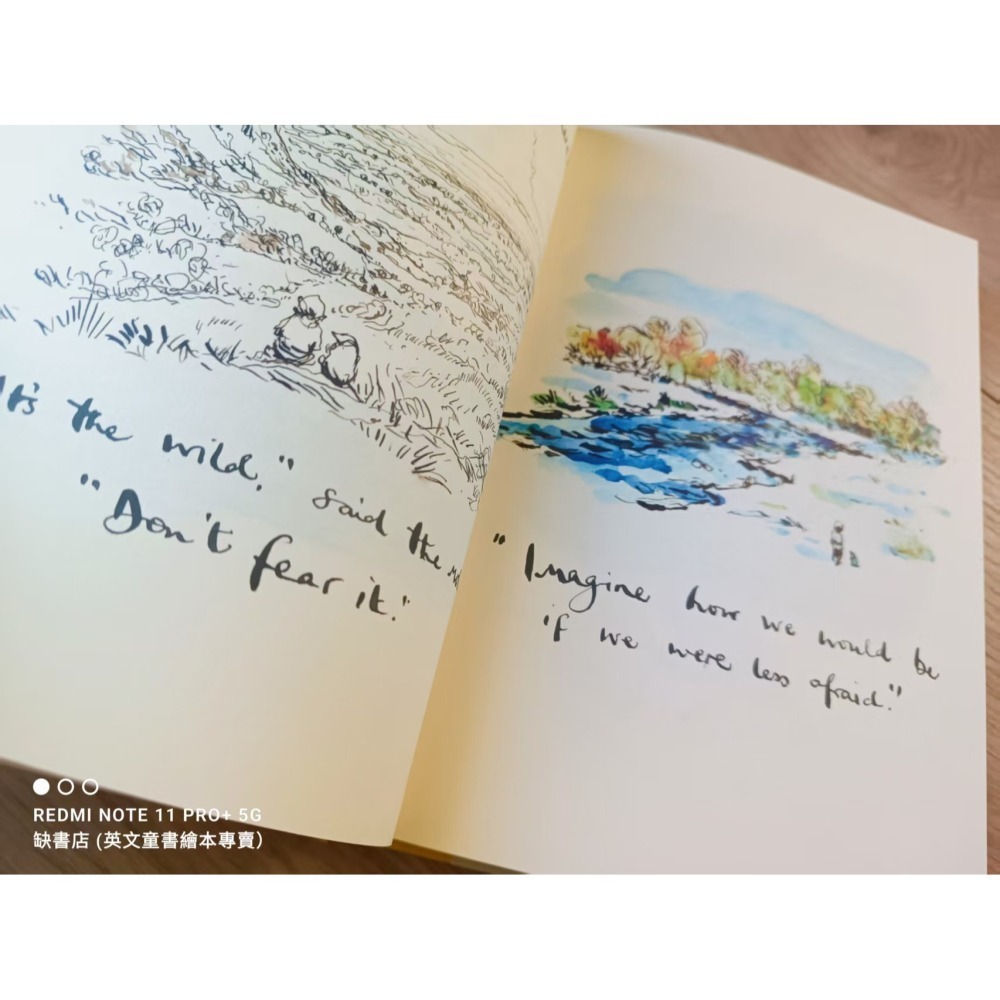 It's the wild," said the
"Don't fear it."
"Imagine how we would be
if we were less afraid."
REDMI NOTE 11 PRO+ 5G
缺書店 (英文童書繪本專賣)